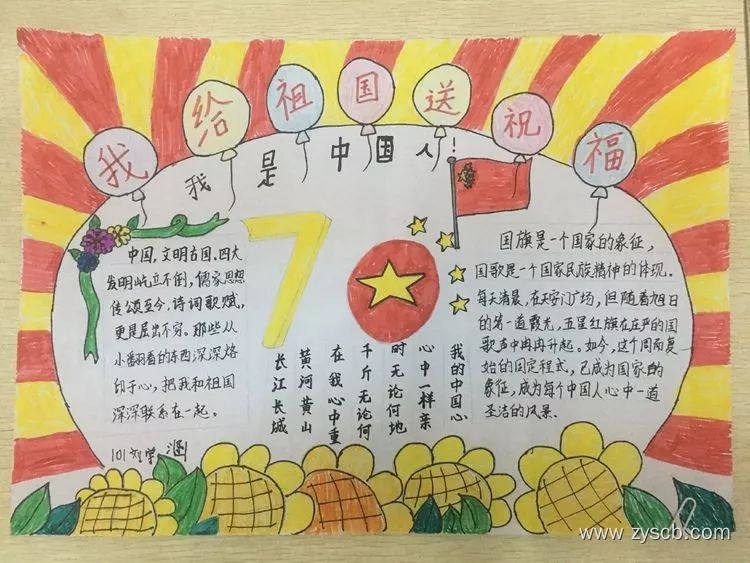 我给祖国送祝福
我是中国人!
70
中国,文明古国.四大
发明屹立不倒,儒家思想
传颂至今,诗词歌赋,
更是层出不穷。那些从
小翻看的东西深深烙
印于心,把我和祖国
深深联系在一起。
101刘学涵
我的中国心
心中一样亲
时无论何地
千斤无论何
在我心中重
黄河黄山
长江长城
国旗是一个国家的象征,
国歌是一个国家民族精神的体现.
每天清晨,在天安门广场,但随着旭日
的第一道霞光,五星红旗在庄严的国
歌声中冉冉升起。如今,这个周而复
始的固定程式,已成为国家的
象征,成为每个中国人心中一道
圣洁的风景.
www.zyscb.com